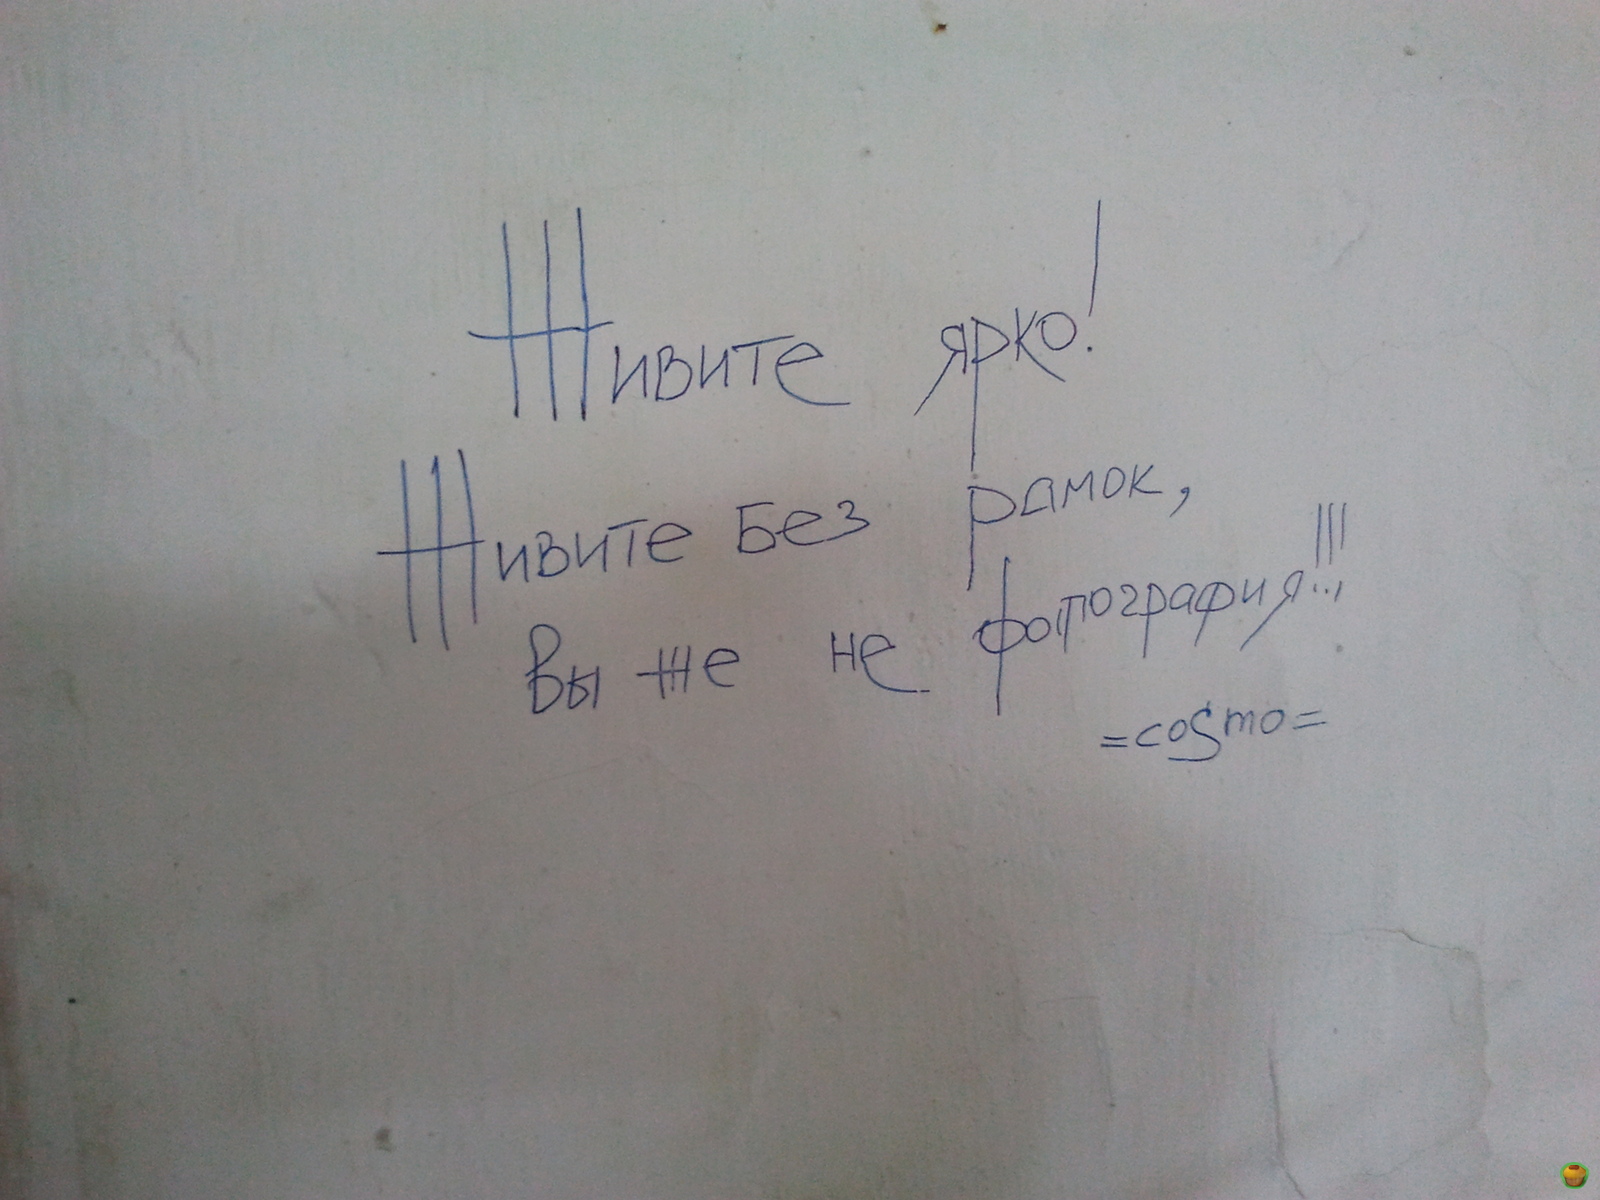 Живите ярко!
Живите без рамок,
Вы же не фотография!!!
=coSmo=